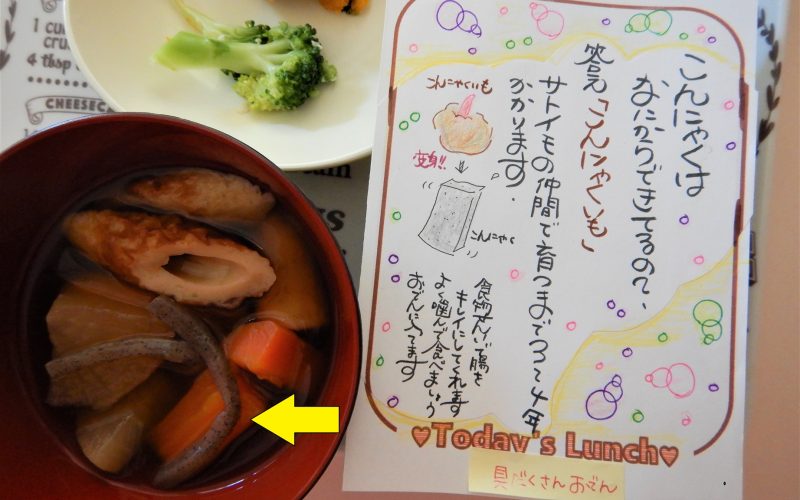 こんにゃくは
なにからできてるの?
答え「こんにゃくいも」
サトイモの仲間で育つまで3〜4年
かかります.
こんにゃくいも
変身!!
こんにゃく
食物せんいで腸を
キレイにしてくれます
よく噛んで食べましょう
おでんに入ってます
♥Today's Lunch♥
具だくさんおでん
4 tbsp